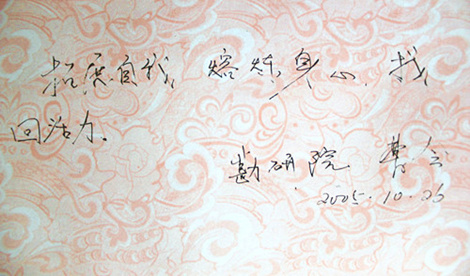 拓展自我,熔炼身心,找
回活力。
勘研院 曹会
2005.10.26